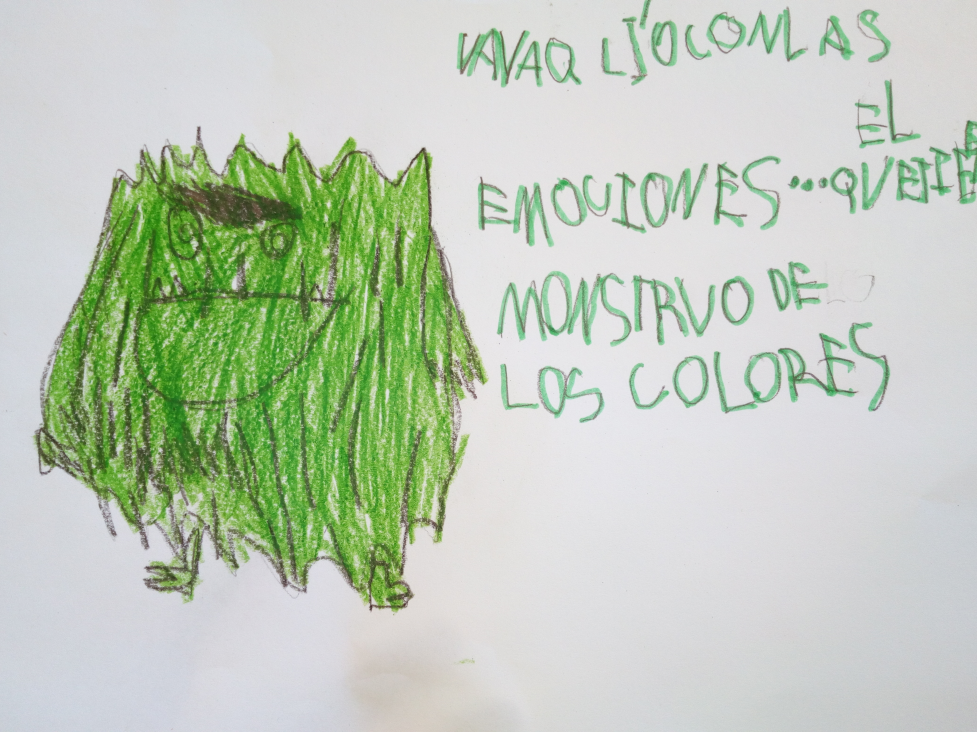 VAYAQ LÍO CON LAS
EL
EMOCIONES...QUE TIENE
MONSTRUO DE
LOS COLORES